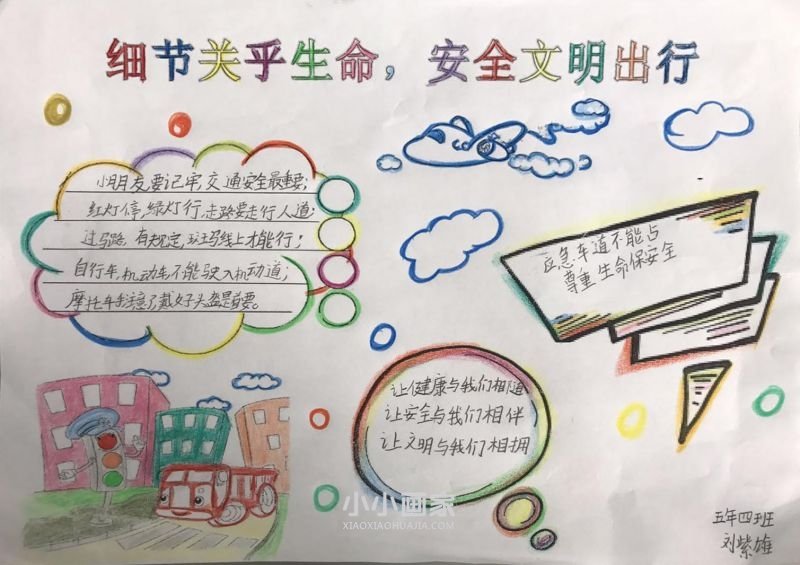 细节关乎生命，安全文明出行
小朋友要记牢,交通安全最重要；
红灯停,绿灯行,走路要走行人道；
过马路,有规定,斑马线上才能行；
自行车,机动车不能驶入机动道；
摩托车 戴好头盔最重要。
应急车道不能占
尊重生命保安全
让健康与我们相随
让安全与我们相伴
让文明与我们相拥
五年四班
刘紫雄
小小画家
XIAOXIAOHUAJIA.COM